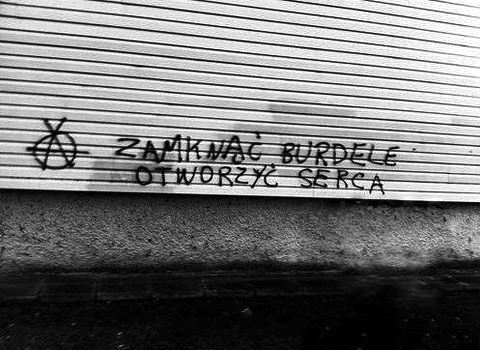 ZAMKNĄĆ BURDELE
OTWORZYĆ SERCA